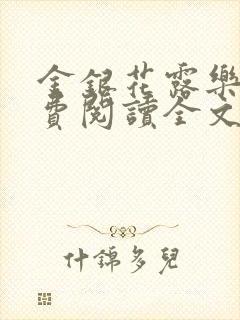 金銀花露樂
費閱讀全文
什錦多兒